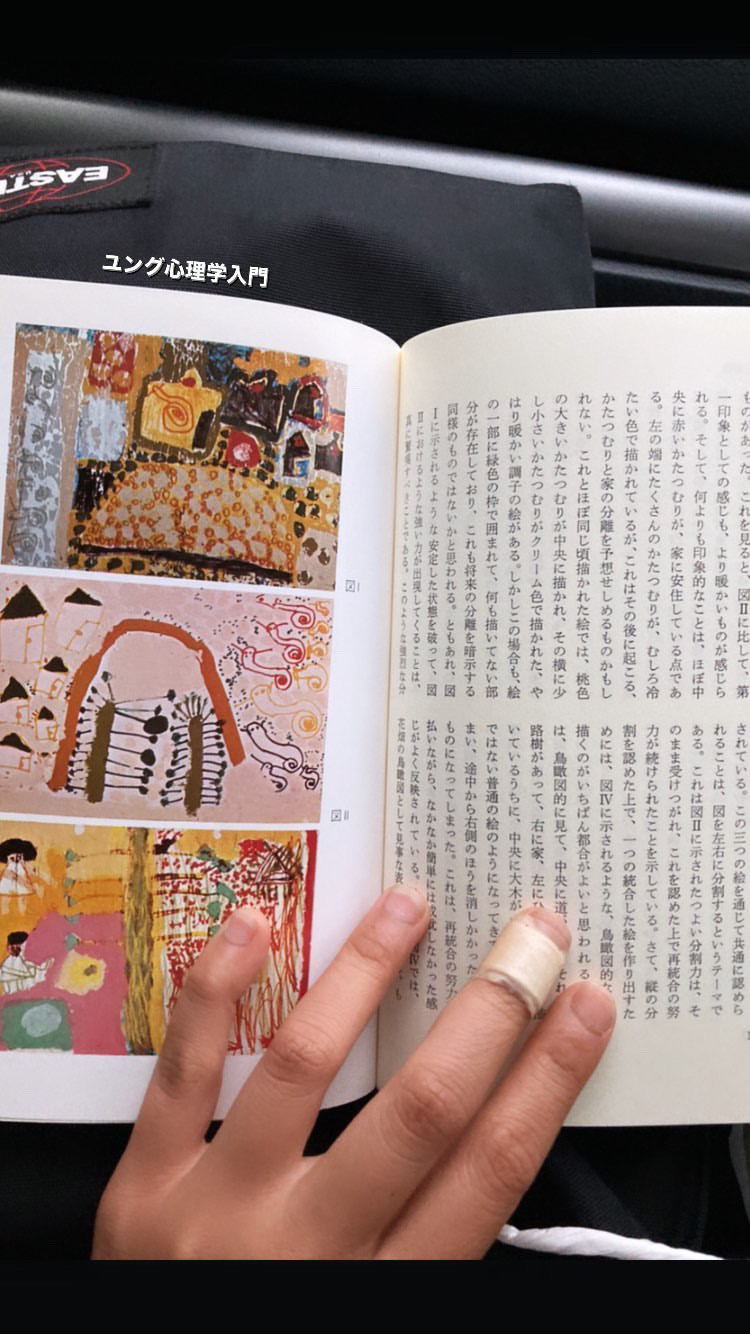 EAST
ユング心理学入門
図I
図II
ものがあった。これを見ると、図IIに比して、第
一印象としての感じも、より暖かいものが感じら
れる。そして、何よりも印象的なことは、ほぼ中
央に赤いかたつむりが、家に安住している点であ
る。左の端にたくさんのかたつむりが、むしろ冷
たい色で描かれているが、これはその後に起こる、
かたつむりと家の分離を予想せしめるものかもし
れない。これとほぼ同じ頃描かれた絵では、桃色
の大きいかたつむりが中央に描かれ、その横に少
し小さいかたつむりがクリーム色で描かれた、や
はり暖かい調子の絵がある。しかしこの場合も、絵
の一部に緑色の枠で囲まれて、何も描いてない部
分が存在しており、これも将来の分離を暗示する
同様のものではないかと思われる。ともあれ、図
Iに示されるような安定した状態を破って、図
IIにおけるような強い力が出現してくることは、
真に驚嘆すべきことである。このような強烈な分
されている。この三つの絵を通じて共通に認めら
れることは、図を左右に分割するというテーマで
ある。これは図IIに示されたつよい分割力は、そ
のまま受けつがれ、これを認めた上で再統合の努
力が続けられたことを示している。さて、縦の分
割を認めた上で、一つの統合した絵を作り出すた
めには、図IVに示されるような、鳥瞰図的な
描くのがいちばん都合がよいと思われる
は、鳥瞰図的に見て、中央に道 それ
路樹があって、右に家、左に
いているうちに、中央に大木が
ではない普通の絵のようになってき
まい、途中から右側のほうを消しかかった
ものになってしまった。これは、再統合の努力
払いながら、なかなか簡単には成就しなかった感
じがよく反映されている。 IVでは、
花畑の鳥瞰図として見事な表 ても